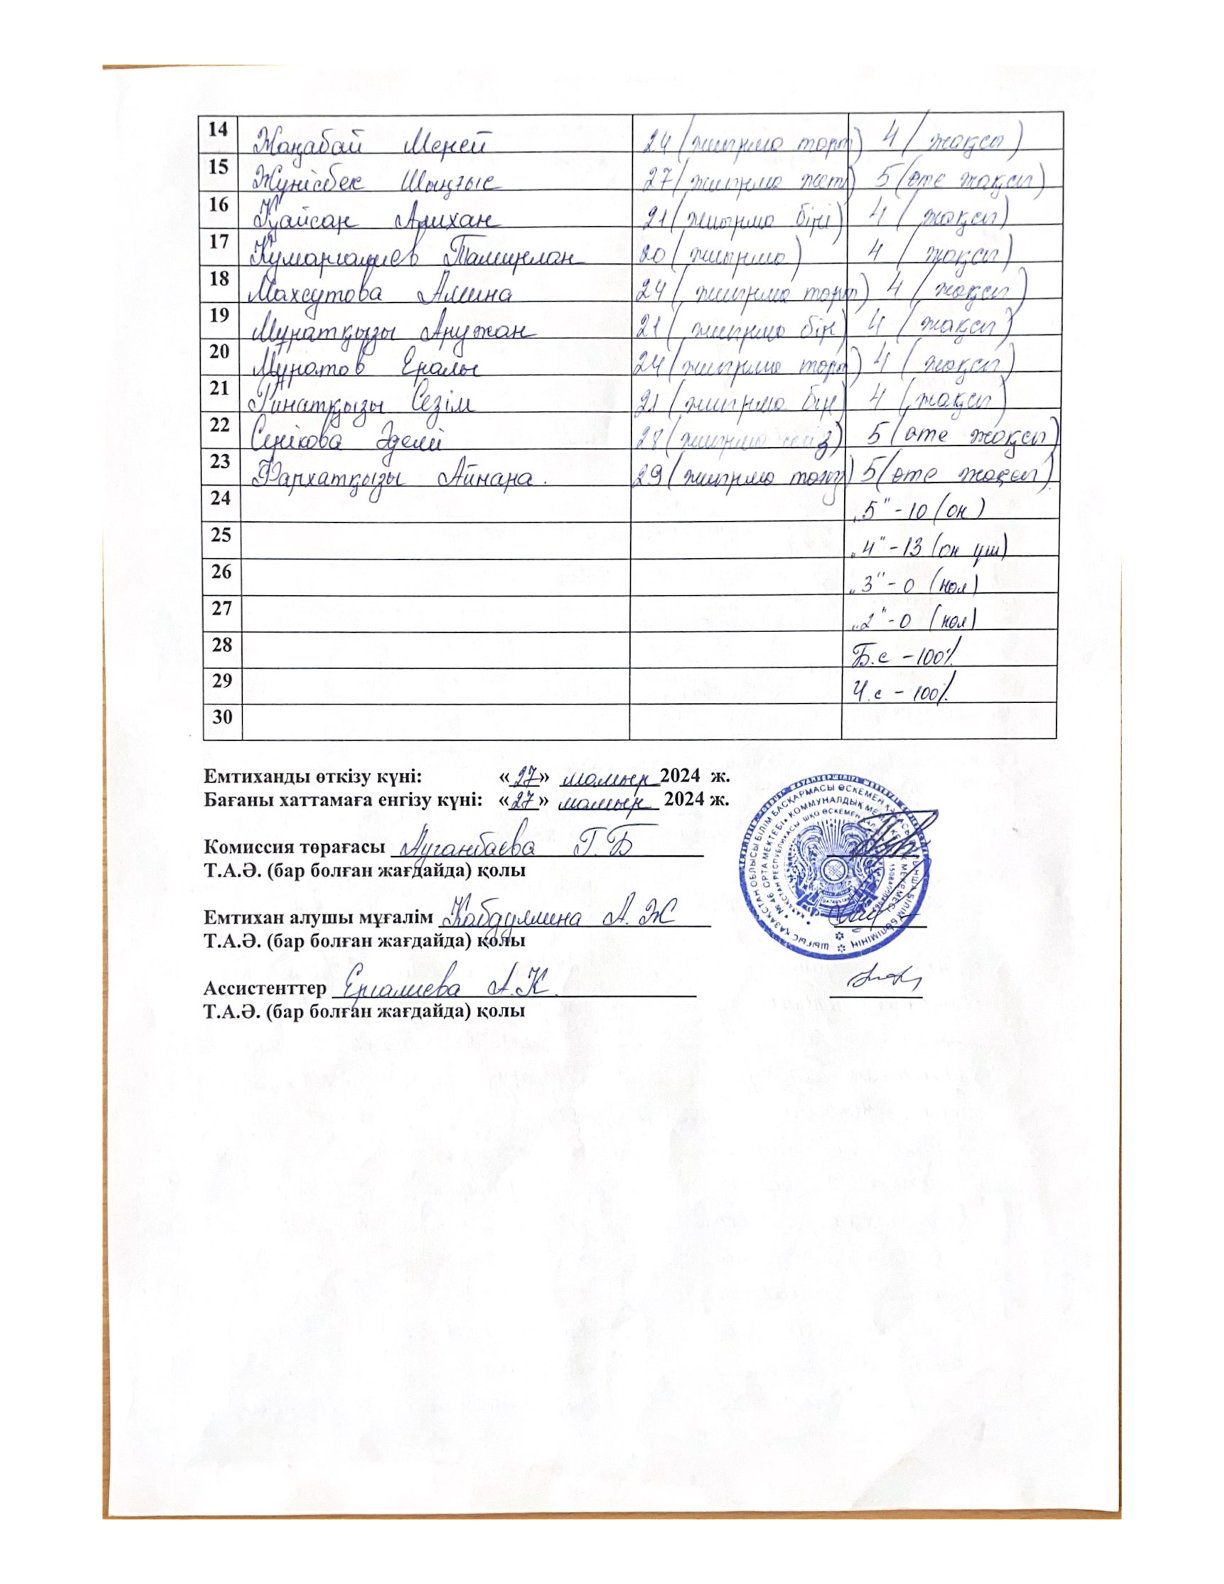 14 Жаңабай Мерей 24 (жиырма төрт) 4 (жақсы)
15 Жүнісбек Шыңғыс 27 (жиырма жеті) 5 (өте жақсы)
16 Қайсан Алихан 21 (жиырма бір) 4 (жақсы)
17 Құмарғалиев Тамирлан 20 (жиырма) 4 (жақсы)
18 Махсутова Амина 24 (жиырма төрт) 4 (жақсы)
19 Мұратқызы Аружан 21 (жиырма бір) 4 (жақсы)
20 Мұратов Ералы 24 (жиырма төрт) 4 (жақсы)
21 Ринатқызы Сезім 21 (жиырма бір) 4 (жақсы)
22 Серікова Әделя 28 (жиырма сегіз) 5 (өте жақсы)
23 Фархатқызы Айнара. 29 (жиырма тоғыз) 5 (өте жақсы)
24 „5" - 10 (он)
25 „4" - 13 (он үш)
26 „3" - 0 (нол)
27 „2" - 0 (нол)
28 Б.с - 100%
29 Ү.с - 100%
30
Емтиханды өткізу күні: «27» мамыр 2024 ж.
Бағаны хаттамаға енгізу күні: «27» мамыр 2024 ж.
Комиссия төрағасы Ауганбаева Г.Б
Т.А.Ә. (бар болған жағдайда) қолы
Емтихан алушы мұғалім Кабдуллина А.Ж
Т.А.Ә. (бар болған жағдайда) қолы
Ассистенттер Ергалиева А.К.
Т.А.Ә. (бар болған жағдайда) қолы